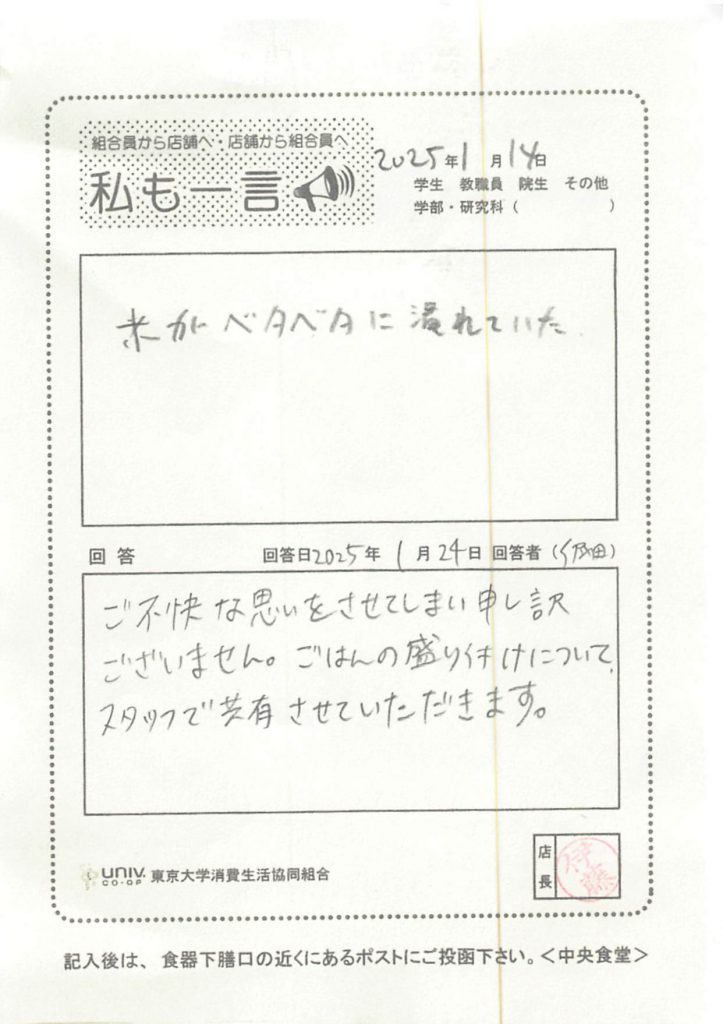 組合員から店舗へ・店舗から組合員へ
私も一言
2025年1月14日
学生 教職員 院生 その他
学部・研究科( )
米がベタベタに潰れていた
回答 回答日2025年1月24日 回答者( 田)
ご不快な思いをさせてしまい申し訳
ございません。ごはんの盛り付けについて、
スタッフで共有させていただきます。
店長
伊藤
UNIV. CO-OP 東京大学消費生活協同組合
記入後は、食器下膳口の近くにあるポストにご投函下さい。<中央食堂>